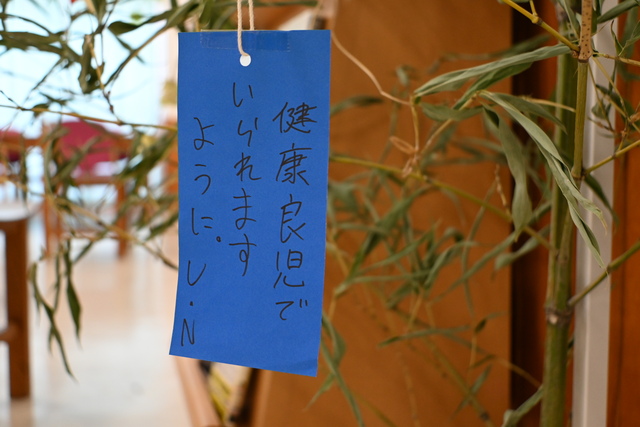 健康良児で
いられます
ように。レ・N